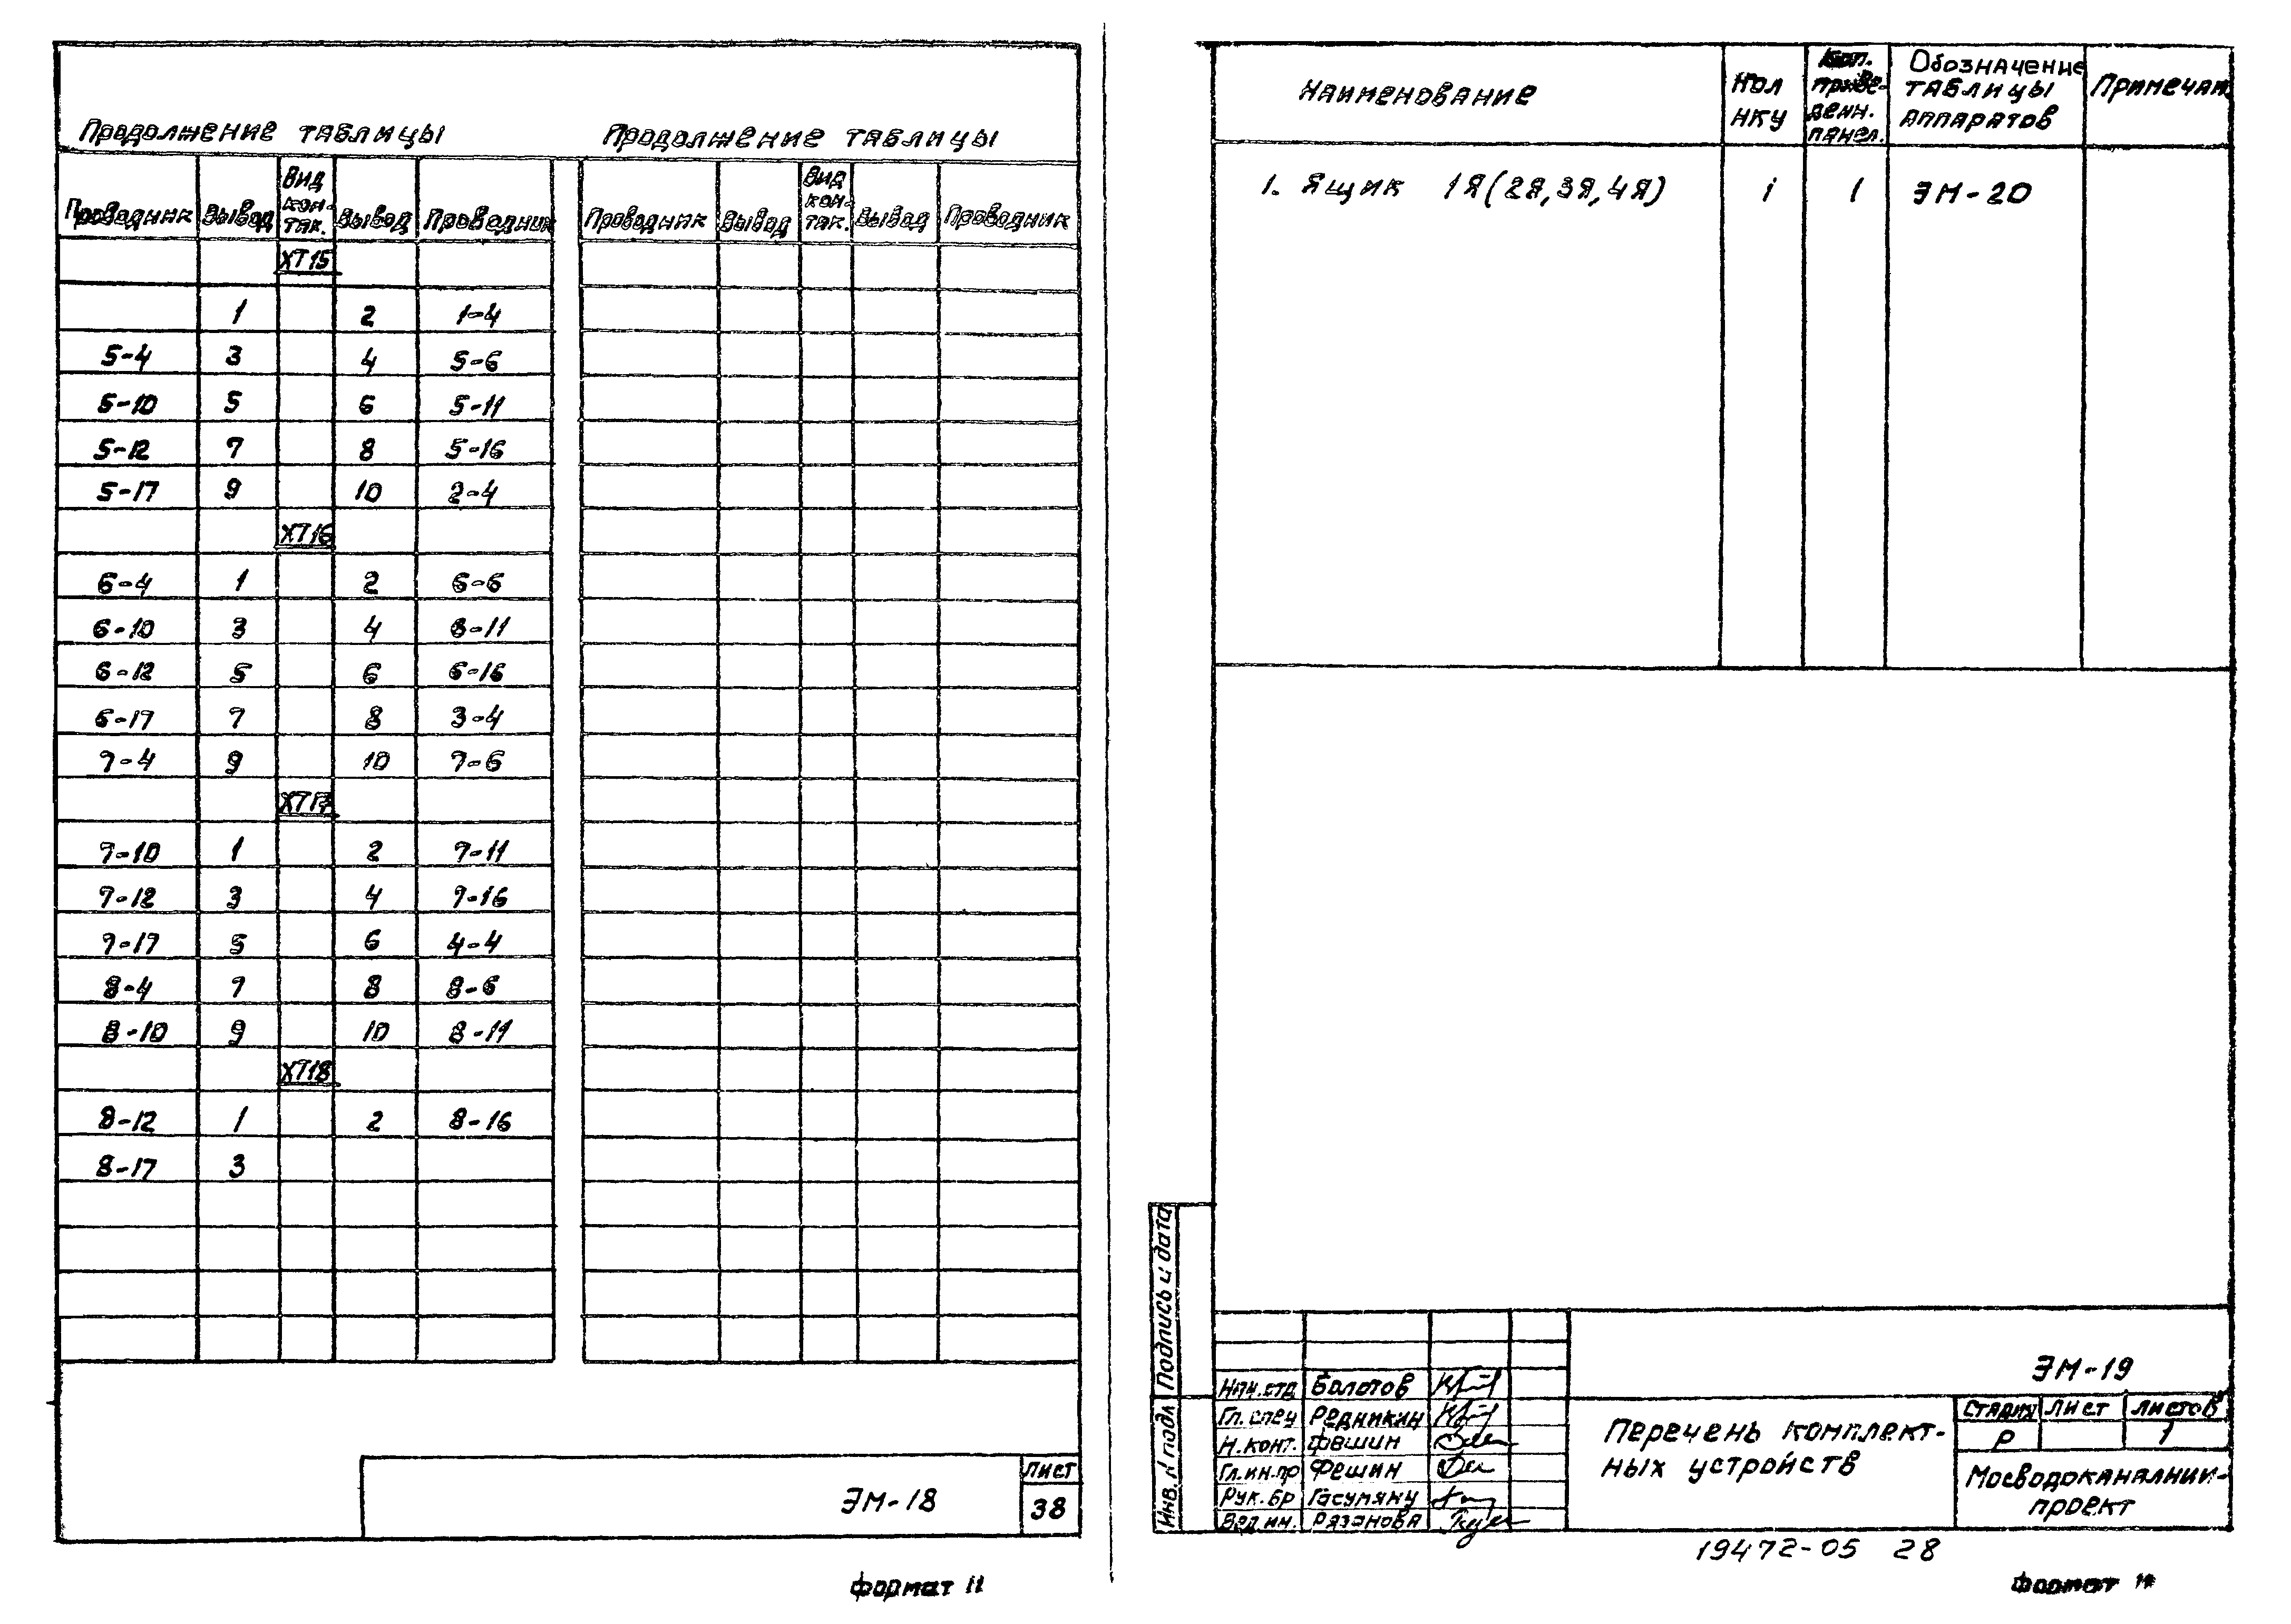 Продолжение таблицы
Проводник Вывод Вид кон-так. Вывод Проводник
ХТ15
1 2 1-4
5-4 3 4 5-6
5-10 5 6 5-11
5-12 7 8 5-16
5-17 9 10 2-4
ХТ16
6-4 1 2 6-6
6-10 3 4 6-11
6-12 5 6 6-16
6-17 7 8 3-4
7-4 9 10 7-6
ХТ17
7-10 1 2 7-11
7-12 3 4 7-16
7-17 5 6 4-4
8-4 7 8 8-6
8-10 9 10 8-11
ХТ18
8-12 1 2 8-16
8-17 3
Продолжение таблицы
Проводник Вывод Вид кон-так. Вывод Проводник
ЭМ-18
Лист
38
Формат 11
Наименование
Кол
НКУ
Кол.
приве-
денн.
панел.
Обозначение
таблицы
аппаратов
Примечан.
1. Ящик 1Я(2Я,3Я,4Я) 1 1 ЭМ-20
Подпись и дата
Инв. № подл
Нач.отд Болотов
Гл.спец Редникин
Н.конт. Фешин
Гл.ин.пр Фешин
Рук.бр Гасумяну
Вед.ин. Рязанова
ЭМ-19
Перечень комплект-
ных устройств
Стадия Лист Листов
Р 1
Мосводоканалнии-
проект
19472-05 28
Формат 11